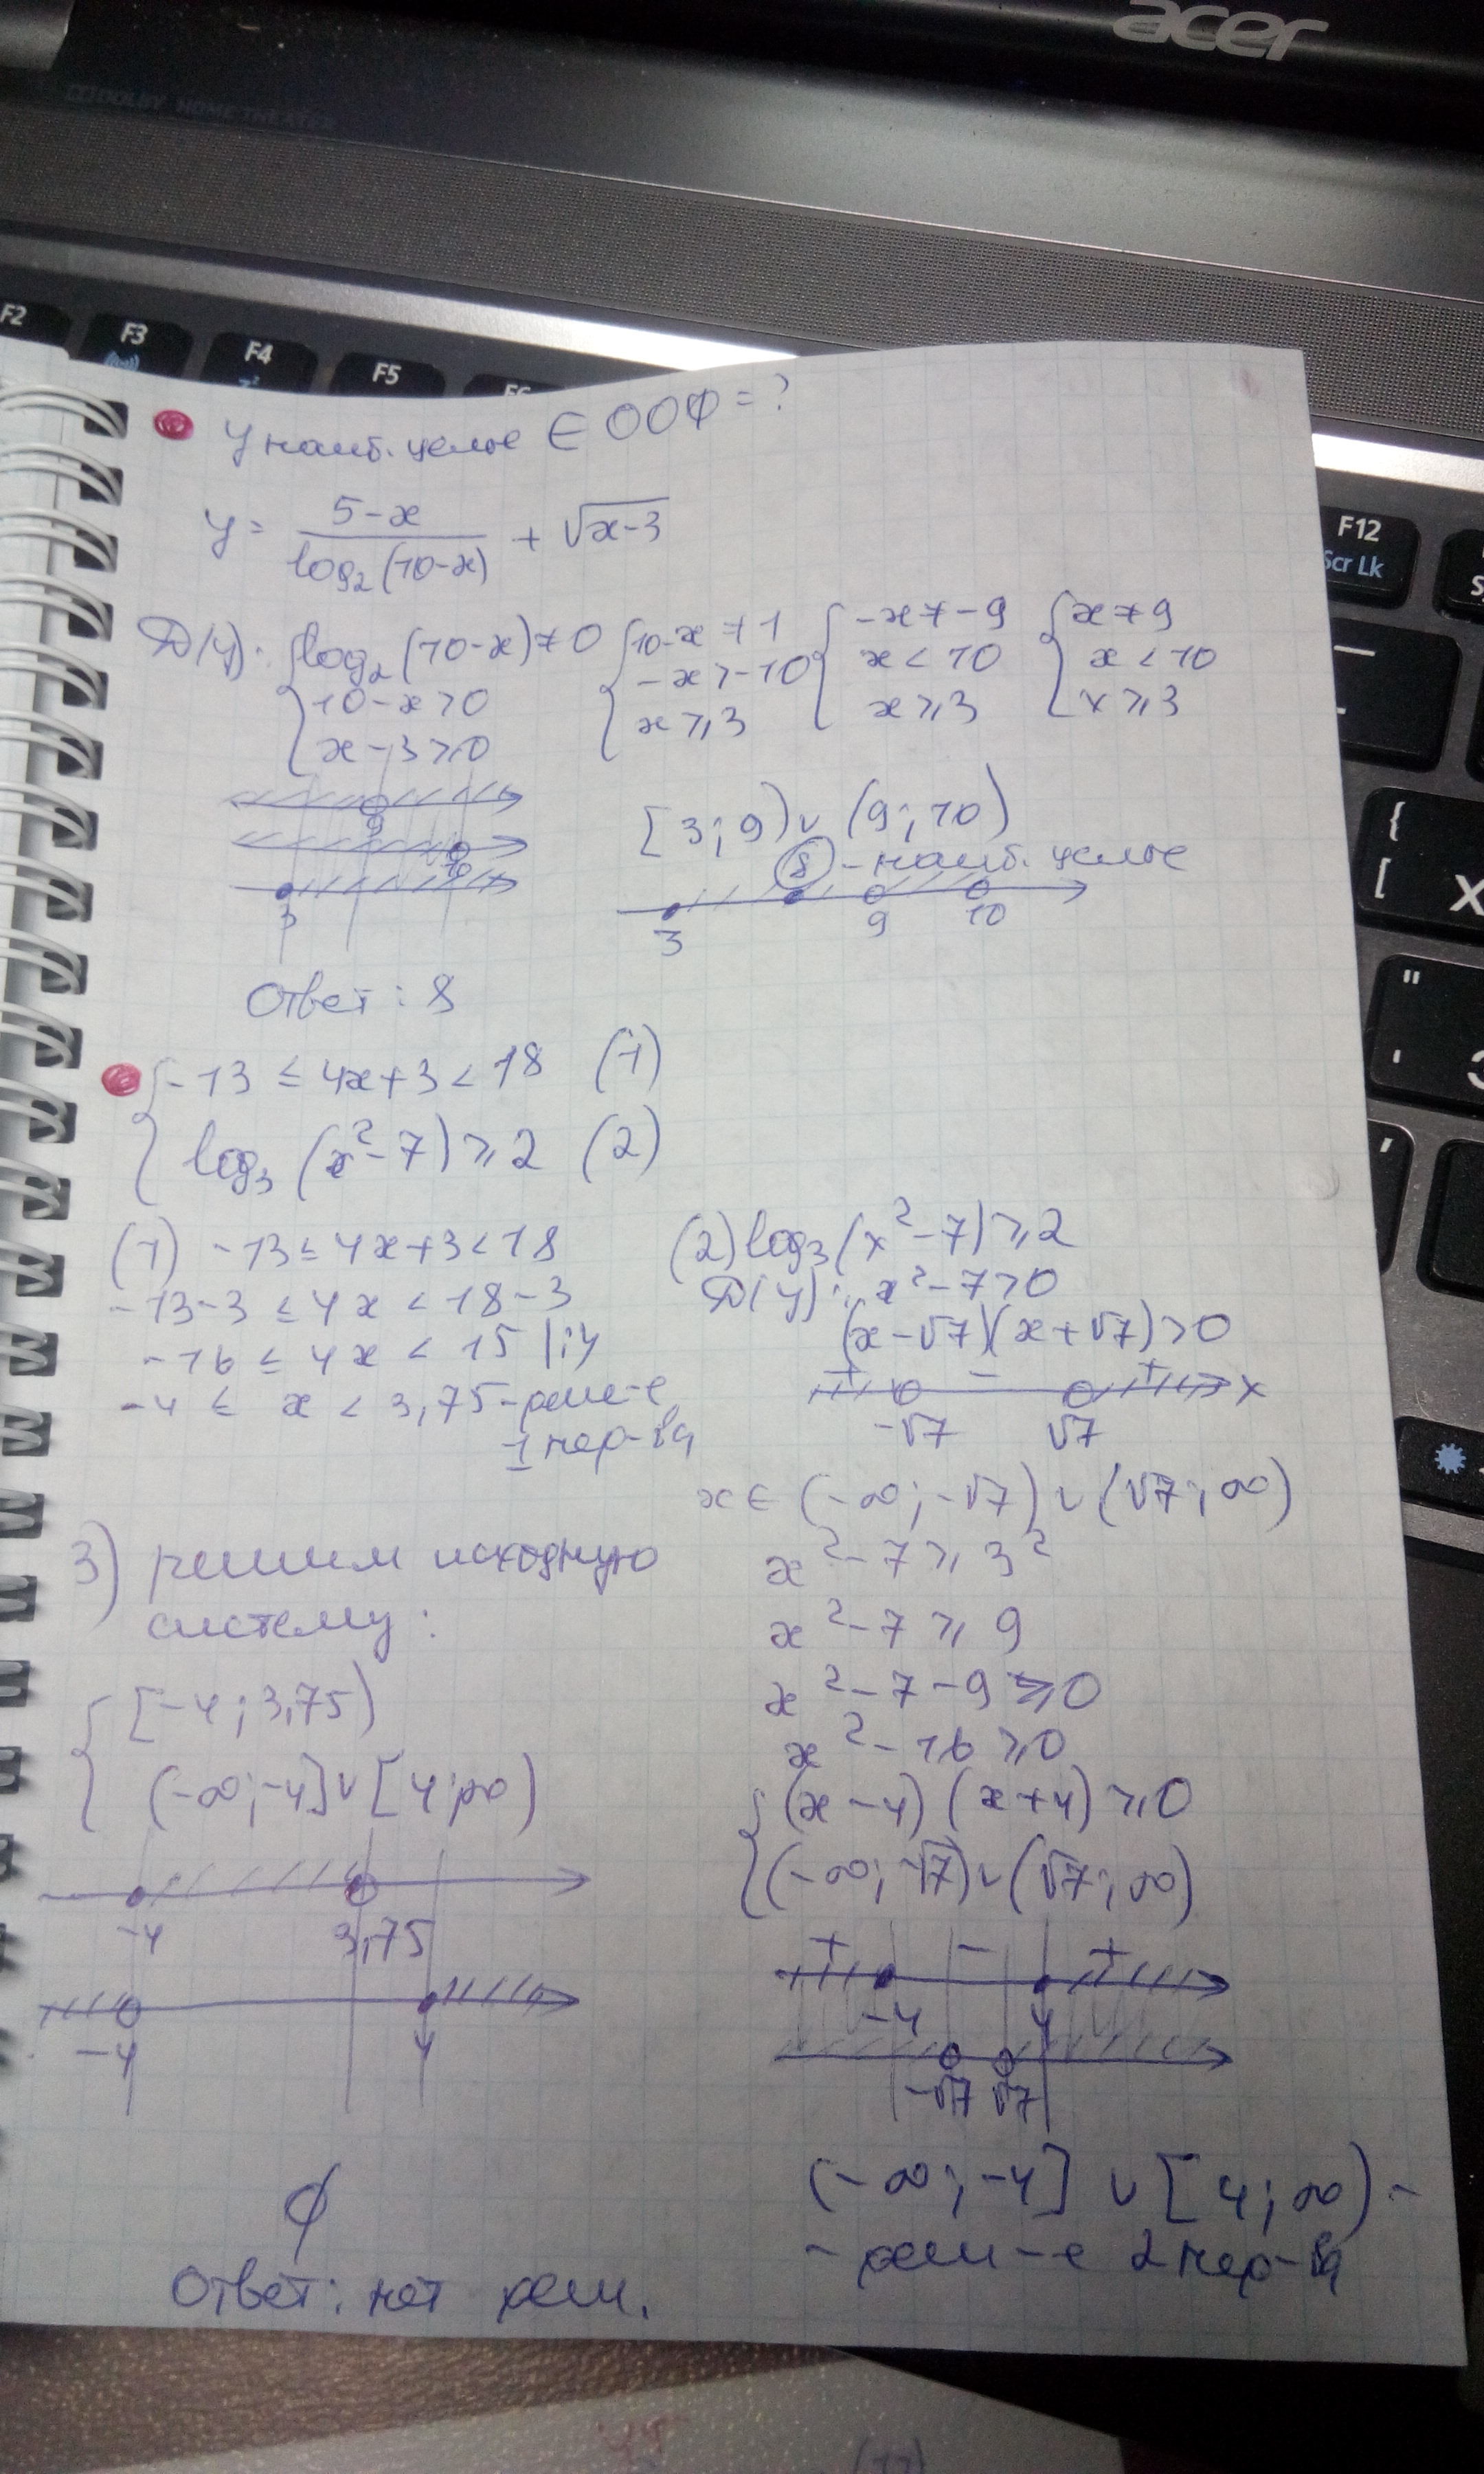 acer
DOLBY HOME THEATER
F2
F3
F4
F5
F12
Scr Lk
у наиб. целое ∈ ООФ = ?
y = (5-x)/(log₂(10-x)) + √(x-3)
D(y): { log₂(10-x) ≠ 0 { 10-x ≠ 1 { -x ≠ -9 { x ≠ 9
10-x > 0 -x > -10 x < 10 x < 10
x-3 ≥ 0 x ≥ 3 x ≥ 3 x ≥ 3
9
10
3
[3; 9) ∪ (9; 10)
8 - наиб. целое
3 9 10
Ответ: 8
{ -13 ≤ 4x+3 < 18 (1)
log₃(x²-7) ≥ 2 (2)
(1) -13 ≤ 4x+3 < 18
-13-3 ≤ 4x < 18-3
-16 ≤ 4x < 15 |:4
-4 ≤ x < 3,75 - реше-е
1 нер-ва
(2) log₃(x²-7) ≥ 2
D(y): x²-7 > 0
(x-√7)(x+√7) > 0
+ - + x
-√7 √7
x ∈ (-∞; -√7) ∪ (√7; ∞)
x²-7 ≥ 3²
x²-7 ≥ 9
x²-7-9 ≥ 0
x²-16 ≥ 0
{ (x-4)(x+4) ≥ 0
(-∞; -√7) ∪ (√7; ∞)
+ - +
-4 4
-√7 √7
(-∞; -4] ∪ [4; ∞) -
- реш-е 2 нер-ва
3) решим исходную
систему:
{ [-4; 3,75)
(-∞; -4] ∪ [4; ∞)
-4 3,75
-4 4
∅
Ответ: нет реш.